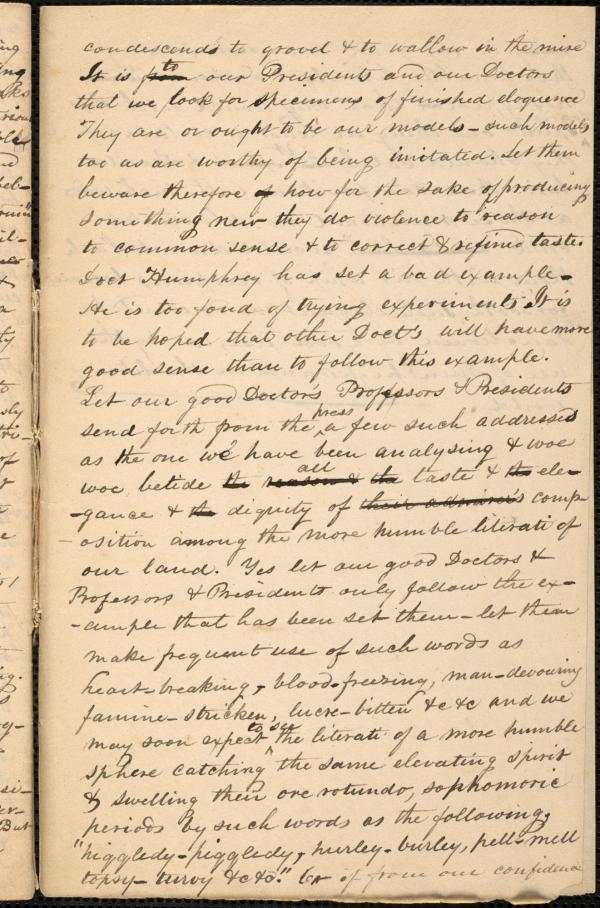 condescends to grovel & to wallow in the mire
It is from to our Presidents and our Doctors
that we look for specimens of finished eloquence
They are or ought to be our models - such models
too as are worthy of being imitated. Let them
beware therefore of how for the sake of producing
something new they do violence to reason
to common sense & to correct & refined taste.
Doct Humphrey has set a bad example -
He is too fond of trying experiments It is
to be hoped that other Doct's will have more
good sense than to follow this example.
Let our good Doctors Professors & Presidents
send forth from the press a few such addresses
as the one we have been analysing & woe
woe betide the reason & the all taste & the ele-
-gance & the dignity of their admirers comp
osition among the more humble literati of
our land. Yes let our good Doctors &
Professors & Presidents only follow the ex-
-ample that has been set them - let them
make frequent use of such words as
heart-breaking, blood-freezing, man-devouring
famine-stricken, lucre-bitten &c &c and we
may soon expect to see the literati of a more humble
sphere catching the same elevating spirit
& swelling their ore rotundo, sophomoric
periods by such words as the following,
"higgledy-piggledy, hurley-burley, pell-mell
topsy-turvy &c &c." Or if from our confidence